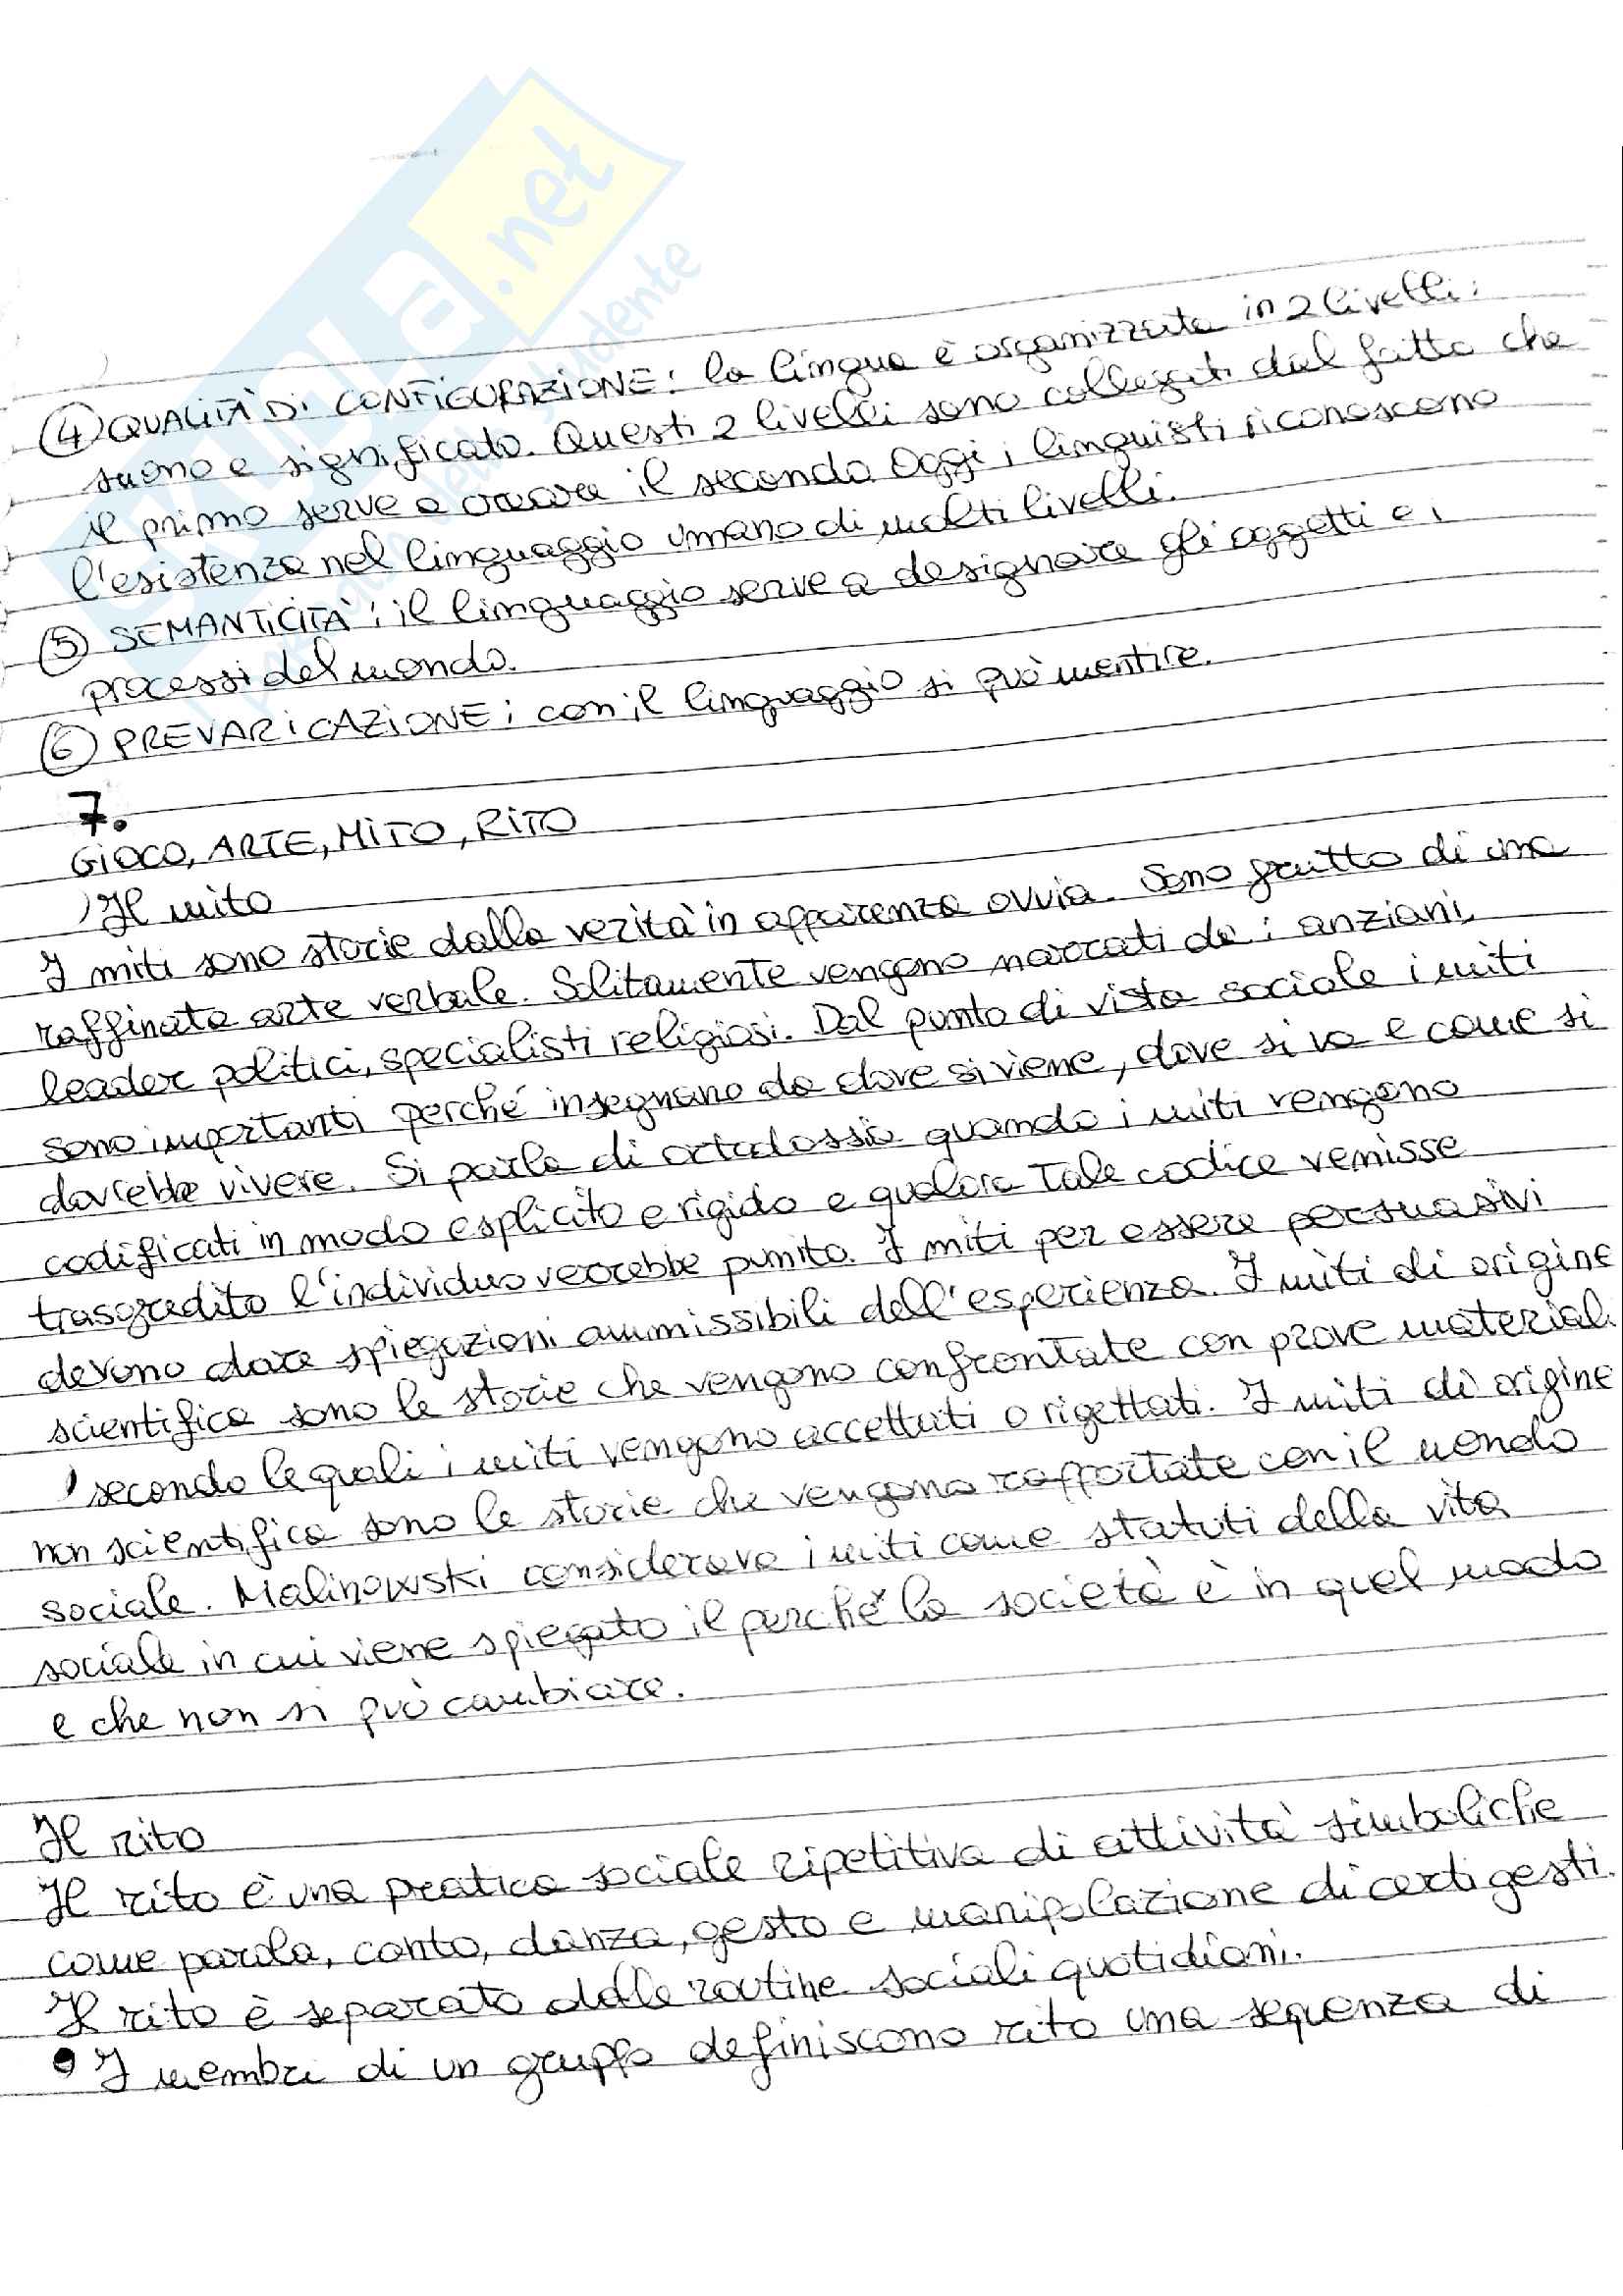 ④ QUALITÀ DI CONFIGURAZIONE: la lingua è organizzata in 2 livelli:
suono e significato. Questi 2 livelli sono collegati dal fatto che
il primo serve a creare il secondo. Oggi i linguisti riconoscono
l'esistenza nel linguaggio umano di molti livelli.
⑤ SEMANTICITÀ: il linguaggio serve a designare gli oggetti e i
processi del mondo.
⑥ PREVARICAZIONE: con il linguaggio si può mentire.
7.
GIOCO, ARTE, MITO, RITO
Il mito
I miti sono storie dalla verità in apparenza ovvia. Sono frutto di una
raffinata arte verbale. Solitamente vengono narrati da i anziani,
leader politici, specialisti religiosi. Dal punto di vista sociale i miti
sono importanti perché insegnano da dove si viene, dove si va e come si
dovrebbe vivere. Si parla di ortodossia quando i miti vengono
codificati in modo esplicito e rigido e qualora tale codice venisse
trasgredito l'individuo verrebbe punito. I miti per essere persuasivi
devono dare spiegazioni ammissibili dell'esperienza. I miti di origine
scientifica sono le storie che vengono confrontate con prove materiali
secondo le quali i miti vengono accettati o rigettati. I miti di origine
non scientifica sono le storie che vengono rapportate con il mondo
sociale. Malinowski considerava i miti come statuti della vita
sociale in cui viene spiegato il perché la società è in quel modo
e che non si può cambiare.
Il rito
Il rito è una pratica sociale ripetitiva di attività simboliche
come parola, canto, danza, gesto e manipolazione di certi gesti.
Il rito è separato dalle routine sociali quotidiani.
• I membri di un gruppo definiscono rito una sequenza di
SKUOLA.net